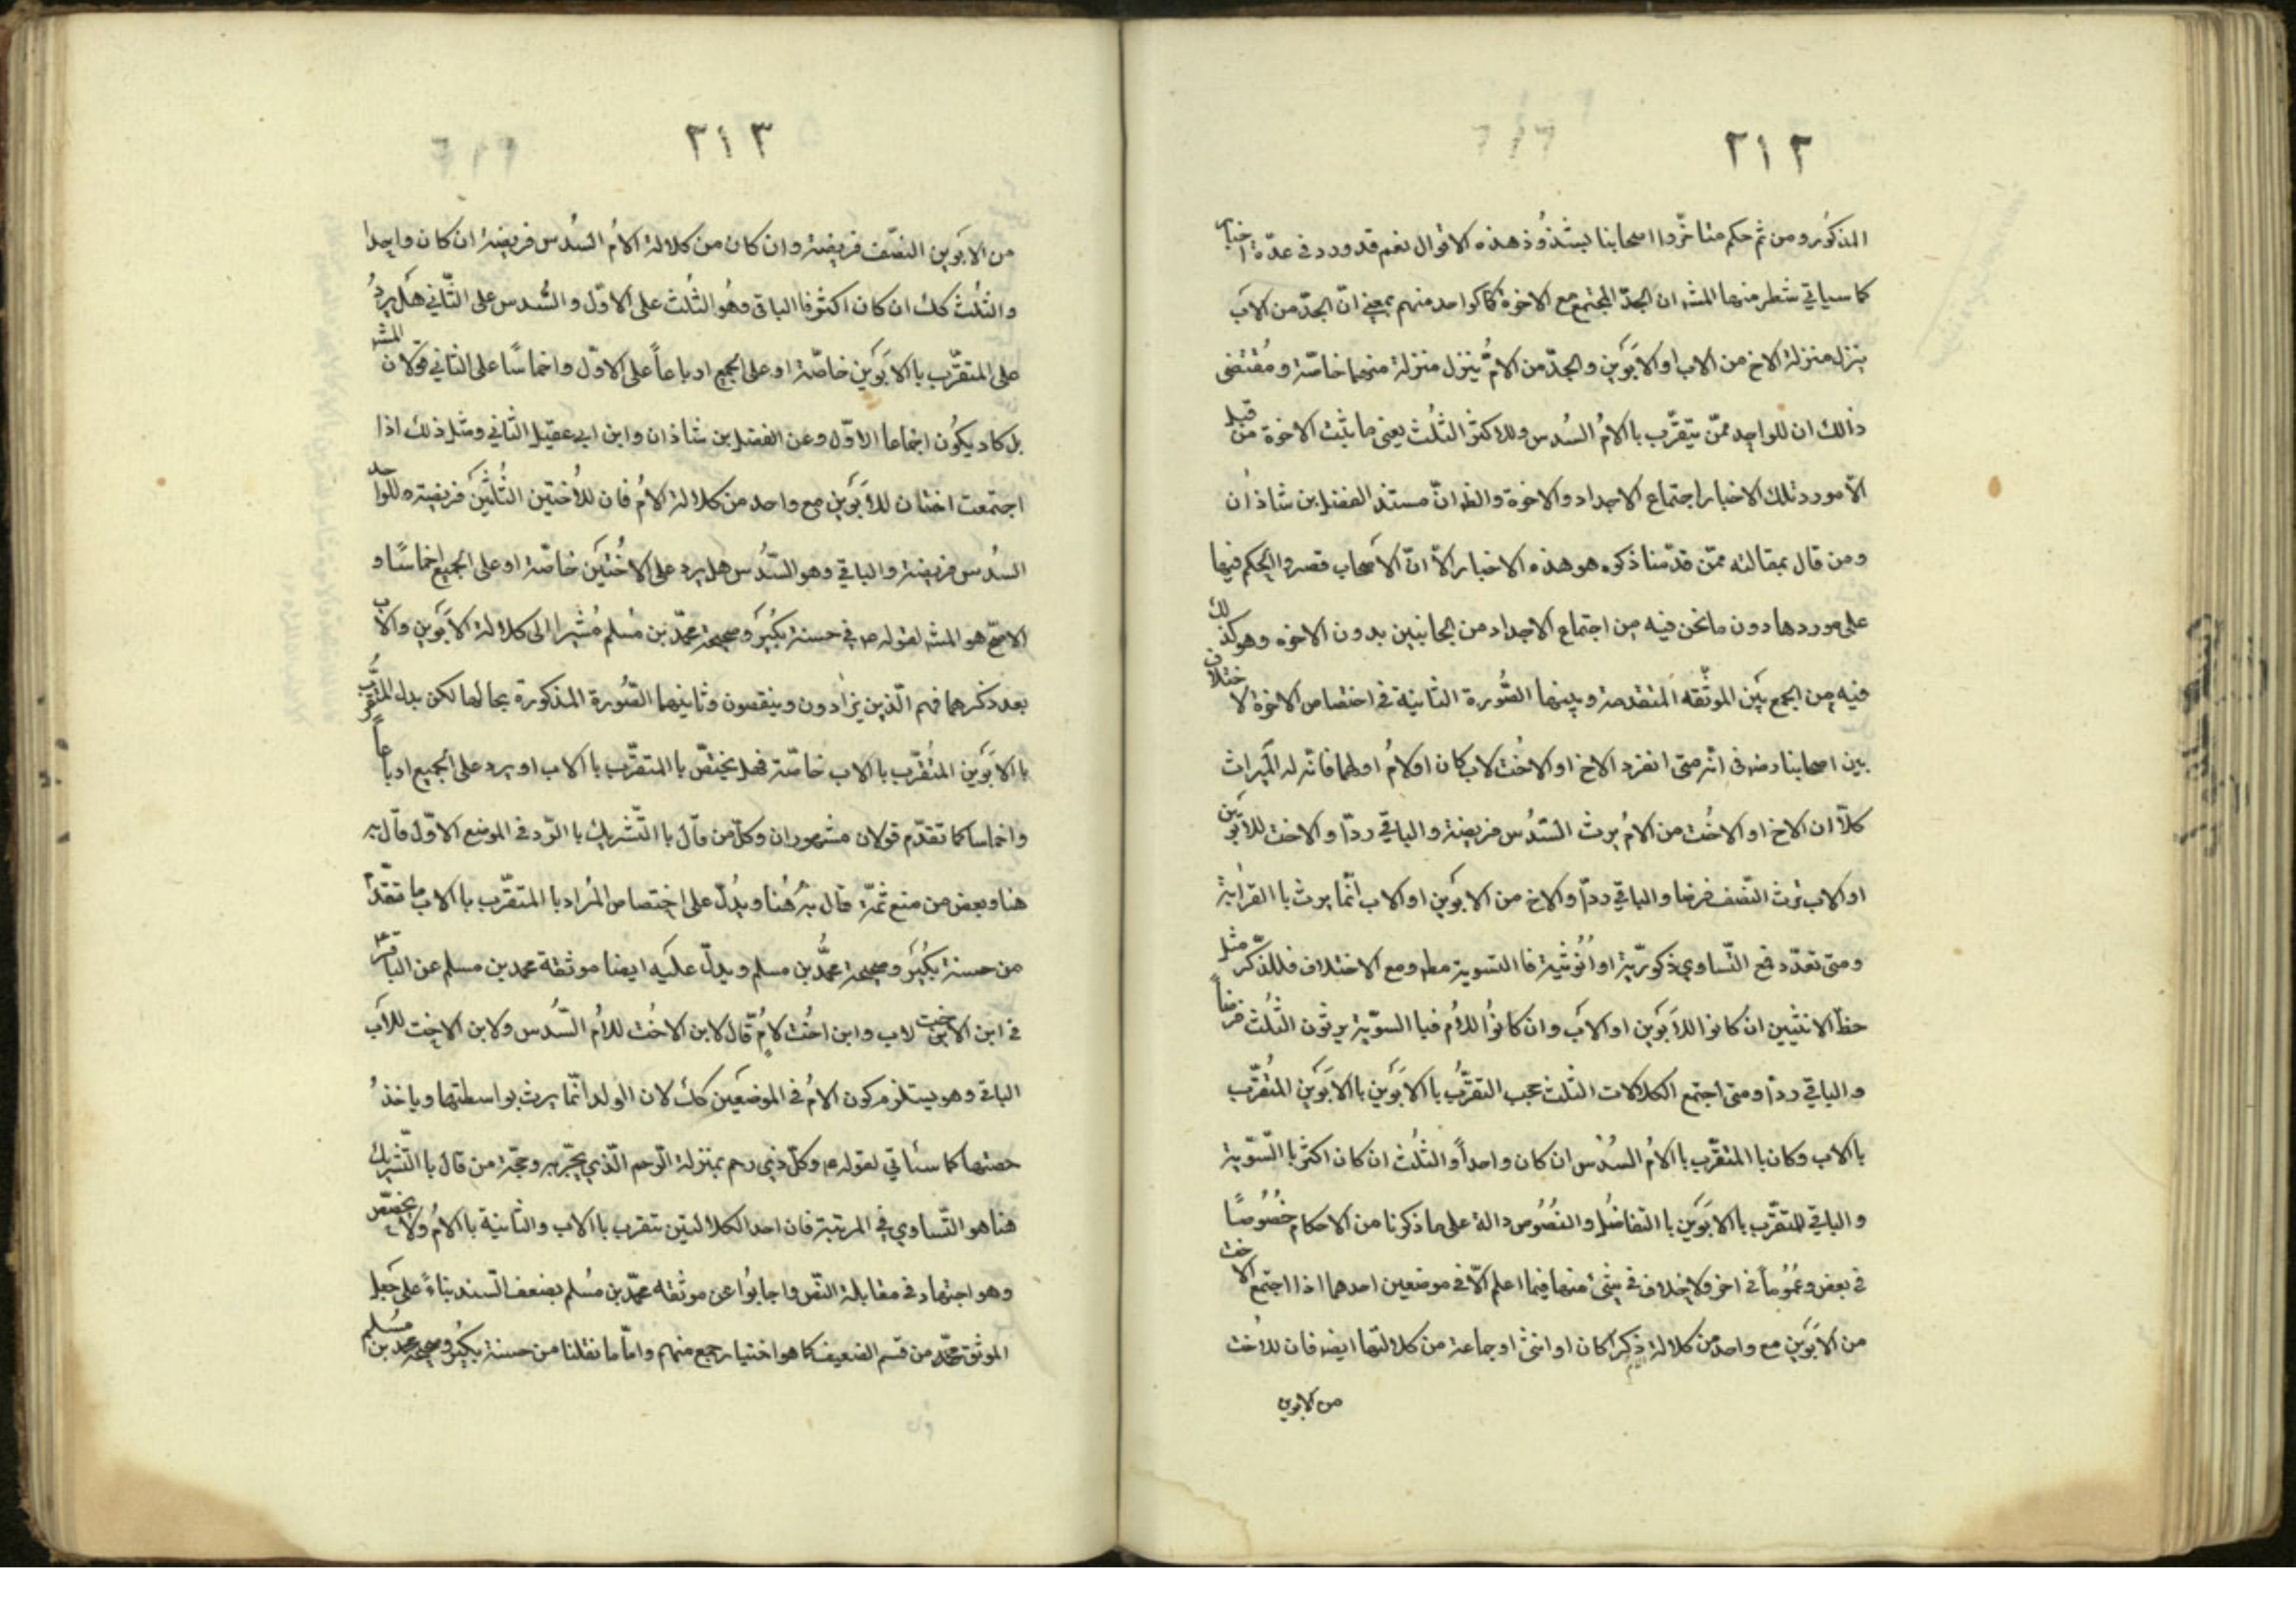 ٢١٢
المذكور ومن ثم حكم متاخّروا اصحابنا بشذُوذ هذه الاقوال نعم قد ورد فى عدّة اخبار
كما سياتي شطر منها المشه ان الجدّ المجتمع مع الاخوة كا كواحد منهم بمعنى انّ الجدّ من الاب
ينزل منزلة الاخ من الاب او الابَوَين والجدّ من الامّ ينزل منزلة منهما خاصّة ومُقتضى
ذالك ان للواحد ممّن يتقرّب باالامُ السُدس وللاكثر الثلُث يعنى ما يثبت الاخوة من قبل
الّا مورد تلك الاخبار اجتماع الاجداد والاخوة والظ انّ مستند الفضل بن شاذان
ومن قال بمقالته ممّن قدّمنا ذكره هو هذه الاخبار الّا انّ الاصحاب قصروا الحكم فيها
على موردها دون ما نحن فيه من اجتماع الاجداد من الجانبين بدون الاخوه وهو كذلك
فيه من الجمع بَين الموثّقه المتقدمة وبينها الصُّورة الثانية فى اختصاص الاخوة لا ختلاف
بين اصحابنا رضه فى انّه متى انفرد الاخ او الاخُت لاب كان او لامُ او لهما فانّه له الميراث
كلّا ان الاخ او الاخُت من الامُ يرث السّدُس فريضة والباقي ردّا والاخت للابَوَين
او الاب ترث النّصف فرضا والباقي ردّا والاخ من الابوَين او الاب انّما يرث باالقرابة
ومتى تعدّد مع التّساوي ذكورّية او اُنوثية فاالتسوية مطه ومع الاختلاف فللذّكر مثل
حظّ الانثيين ان كانوا للابَوَين او الاب وان كانوُا للاُم فباالسوّية يرثون الثلُث فرضاً
والباقي ردّا ومتى اجتمع الكلالات الثلث حجب التقرّبُ باالابَوَين باالابَوَين المتُقرّب
باالاب وكان باالمتقرّب باالامُ السُدُس ان كان واحداً والثلُث ان كان اكثر باالسّوّية
والباقي للمتقرّب باالابَوَين باالتفاضُل والنصُوُص دالة على ما ذكرنا من الاحكام خصُوُصًا
فى بعض وعمُوُماً فى اخر ولا خلاف فى شئ منها فيما اعلم الّا فى موضعين احدهما اذا اجتمع الاخت
من الابَوَين مع واحد من كلالة الام ذكرا كان او انثى او جماعة من كلالتها ايضه فان للاخت
من الابوين
٢١٣
من الابوَين النصّف فريضة وان كان من كلالة الامُ السُدس فريضة ان كان واحدا
والثلُث كك ان كان اكثر فاالباقى وهوُ الثلُث على الاوّل والسُّدس على الثّاني هَل يردُ
على المتقرّب باالابَوَين خاصّة او على الجميع ارباعاً على الاوّل واخماسًا على الثاني قولان المشه
بل كاد يكوُن اجماعا الاوّل وعن الفضل بن شاذان وابن ابي عقيل الثاني ومثل ذلك اذا
اجتمعت اختان للابَوَين مع واحد من كلالة الامُ فان للاُختين الثُلثَين فريضة وللواحد
السُدس فريضة والباقي وهو السّدُس هل يرد على الاخُتيَن خاصّة او على الجميع اخماسًا و
الاصّح هو المشه لقوله ع في حسنة بكيُر وصحيحة محمّد بن مُسلم مُشيرا الى كلالة الابَوَين والاب
بعد ذكرهما فهم الّذين يزادون وينقصون وثانيهما الصُّورة المذكورة بحالها لكن بدل المتقرّب
باالابَوَين المتُقرّب باالاب خاصّة فهل يختصّ باالمتقرّب باالاب او يرد على الجميع ارباعاً
واخماسا كما تقدّم قولان مشهوران وكلّ من قال باالتّشريك باالرّد فى الموضع الاوّل قال به
هنا وبعض من منع ثمّة قال به هُنا ويدُلّ على اختصاص المرُاد باالمتقرّب باالاب ما تقدّم
من حسنة بكيُر وصحيحة محمُّد بن مسلم ويدلّ عليَه ايضا موثقة محمد بن مسلم عن الباقر ع
في ابن الاخت لاب وابن اخُت لامُ قال لابن الاخُت للامُ السُّدس ولابن الاخت للاب
الباقى وهو يستلزم كون الامُ فى الموضعَين كك لان الولد انّما يرث بواسطتها وياخذُ
حصتها كما سئاتي لقوله ع وكلّ ذي رحم بمنزلة الرّحم الّذي يجّر به وحجّة من قال باالتّشريك
هنا هو التّساوي في المرتبة فان احد الكلالتين تتقرب باالاب والثانية باالامُ ولا يخصّص
وهو اجتهاد فى مقابلة النّص واجابوُا عن موثقه محمّد بن مُسلم بضعف السّند بناءً على جعل
الموثق من قسم الضعيف كما هو اختيار جمع منهم وامّا ما نقلنا من حسنة بكيُر وصحيحة محمد بن مسُلم